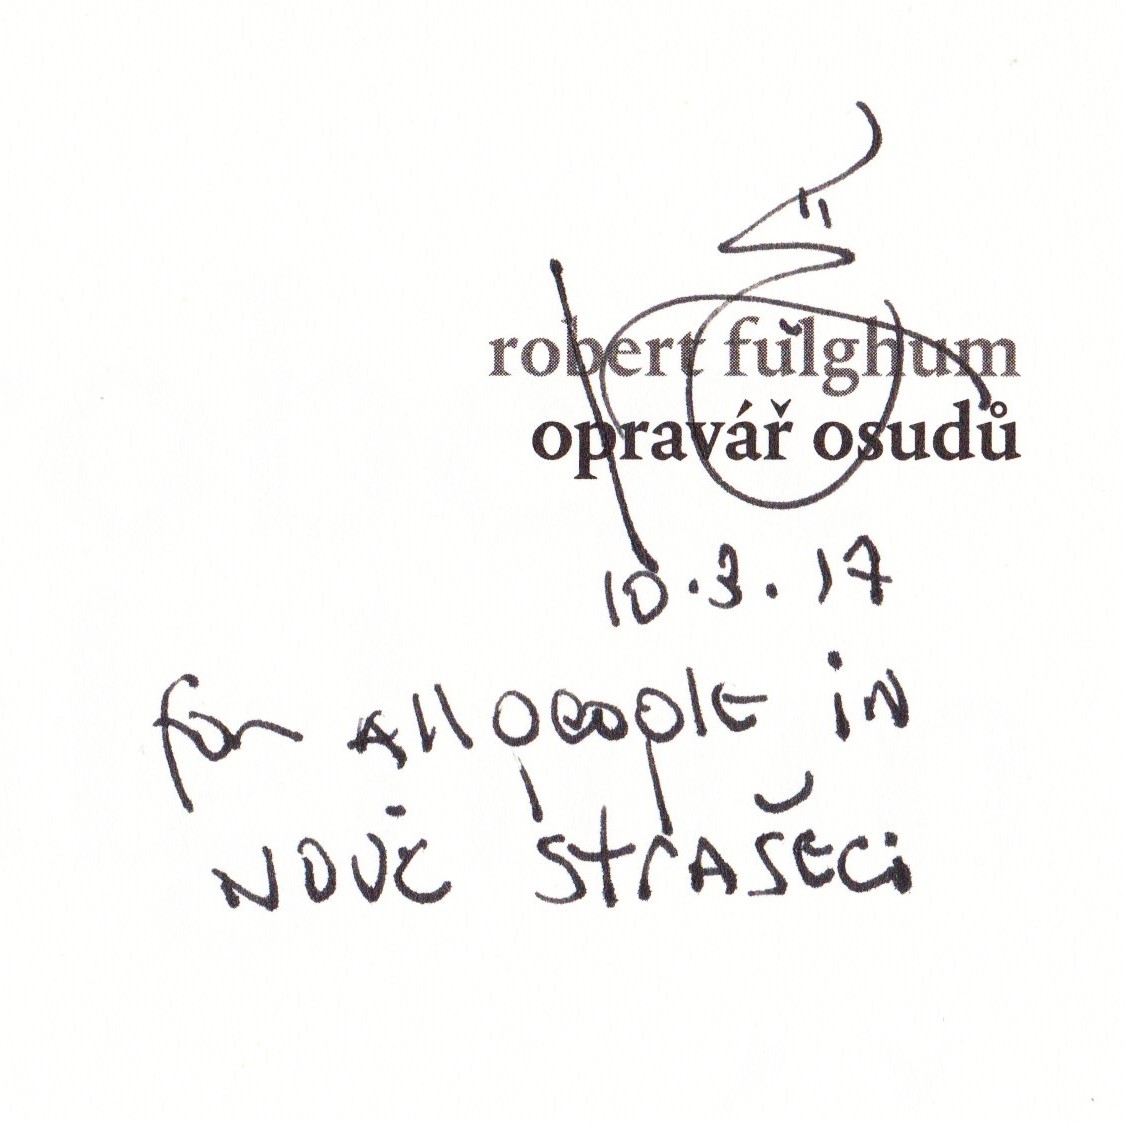 robert fulghum
opravář osudů
10.3.17
for all people in
Nové Strašeci